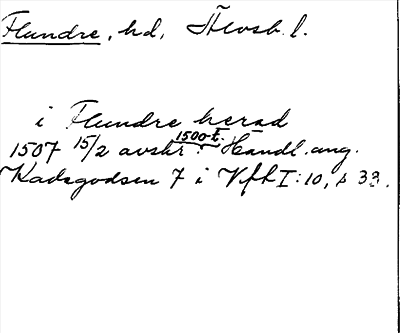 Flundre, hd, Älvsb. l.
i Flundre herad
1507 15/2 avskr. 1500-t. Handl. ang.
Kadsgodsen 7 i VfT I: 10, s 33.